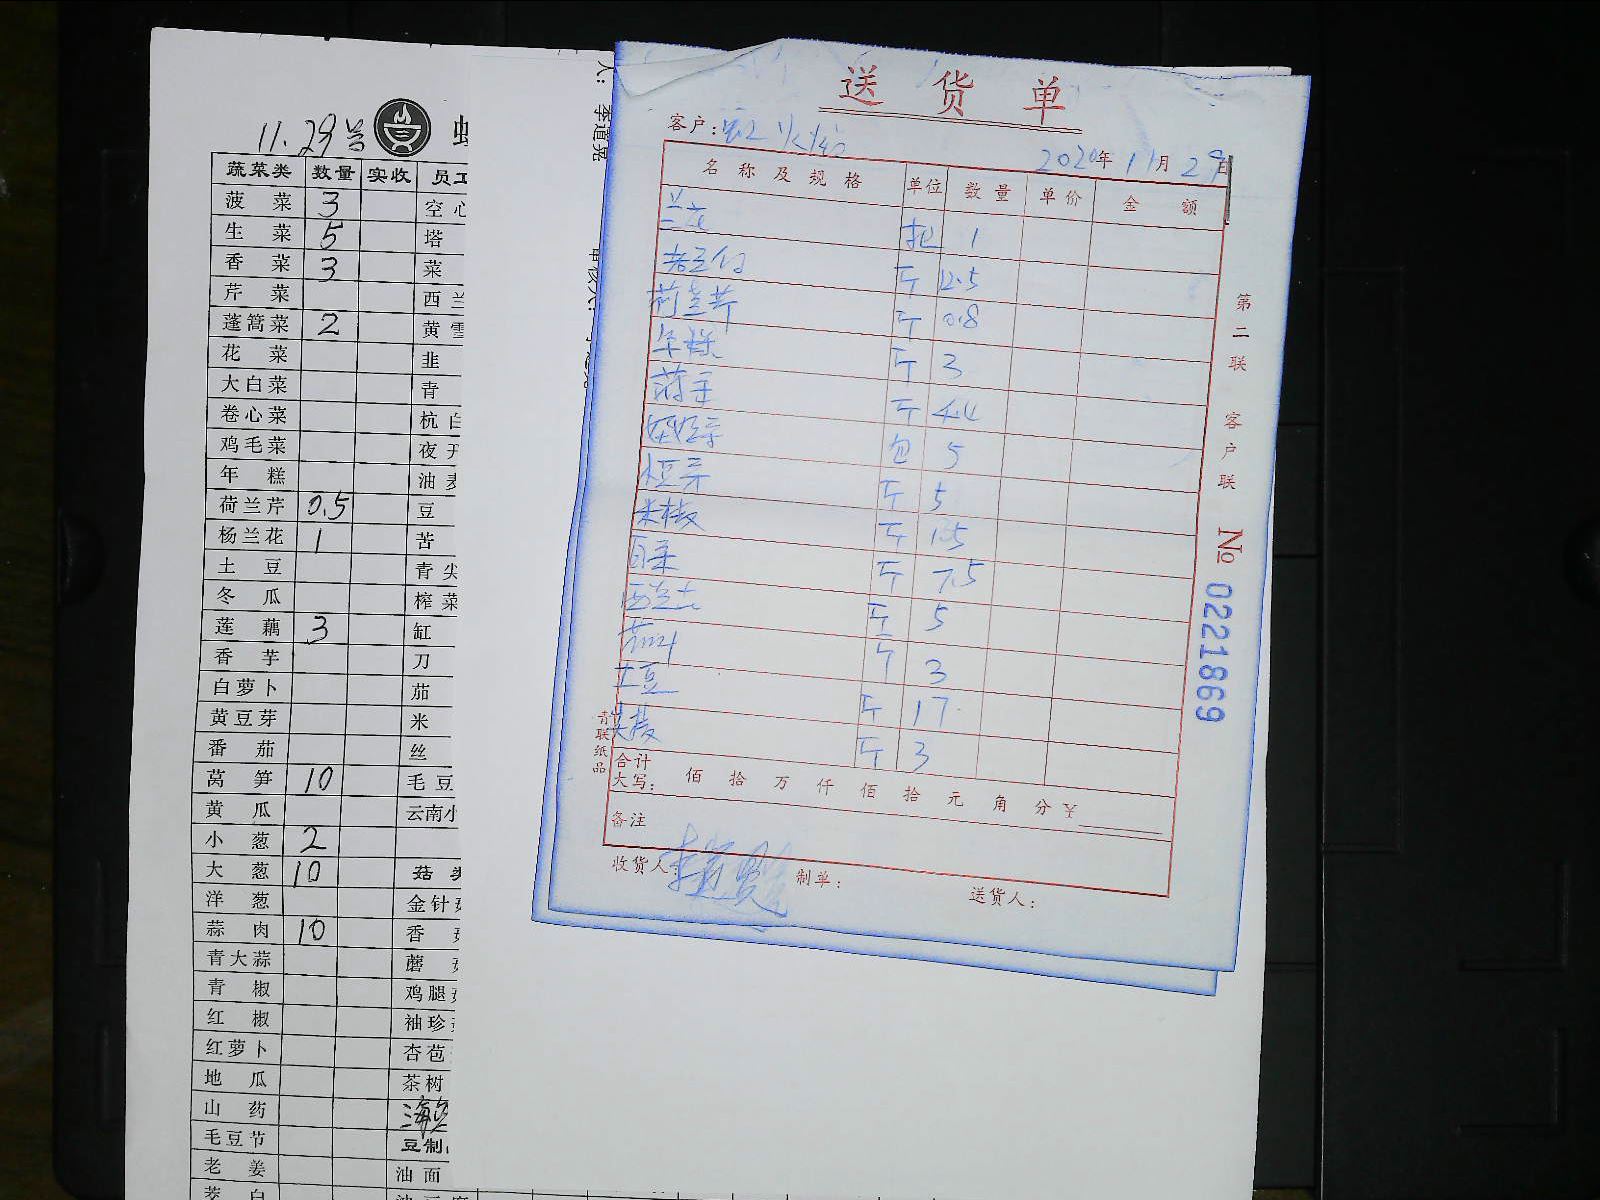 11.29号
蔬菜类 数量 实收 员工
菠菜 3 空心
生菜 5 塔
香菜 3 菜
芹菜 西兰
蓬篙菜 2 黄雪
花菜 韭
大白菜 青
卷心菜 杭白
鸡毛菜 夜开
年糕 油麦
荷兰芹 0.5 豆
杨兰花 1 苦
土豆 青尖
冬瓜 榨菜
莲藕 3 缸
香芋 刀
白萝卜 茄
黄豆芽 米
番茄 丝
莴笋 10 毛豆
黄瓜 云南小
小葱 2
大葱 10 菇
洋葱 金针
蒜肉 10 香
青大蒜 蘑
青椒 鸡腿
红椒 袖珍
红萝卜 杏苞
地瓜 茶树
山药
毛豆节 豆制
老姜 油面
茭白
人: 李道亮
送货单
客户:
2020年 11月 29日
名称及规格 单位 数量 单价 金额
兰花 把 1
斤 12.5
荷兰芹 斤 0.8
年糕 斤 3
斤 4.4
包 5
斤 5
米椒 斤 1.5
白菜 斤 7.5
西兰花 斤 5
斤 3
土豆 斤 17
斤 3
合计
大写: 佰 拾 万 仟 佰 拾 元 角 分 ¥
备注
收货人: 制单: 送货人:
第二联 客户联
No 0221869
青联纸品